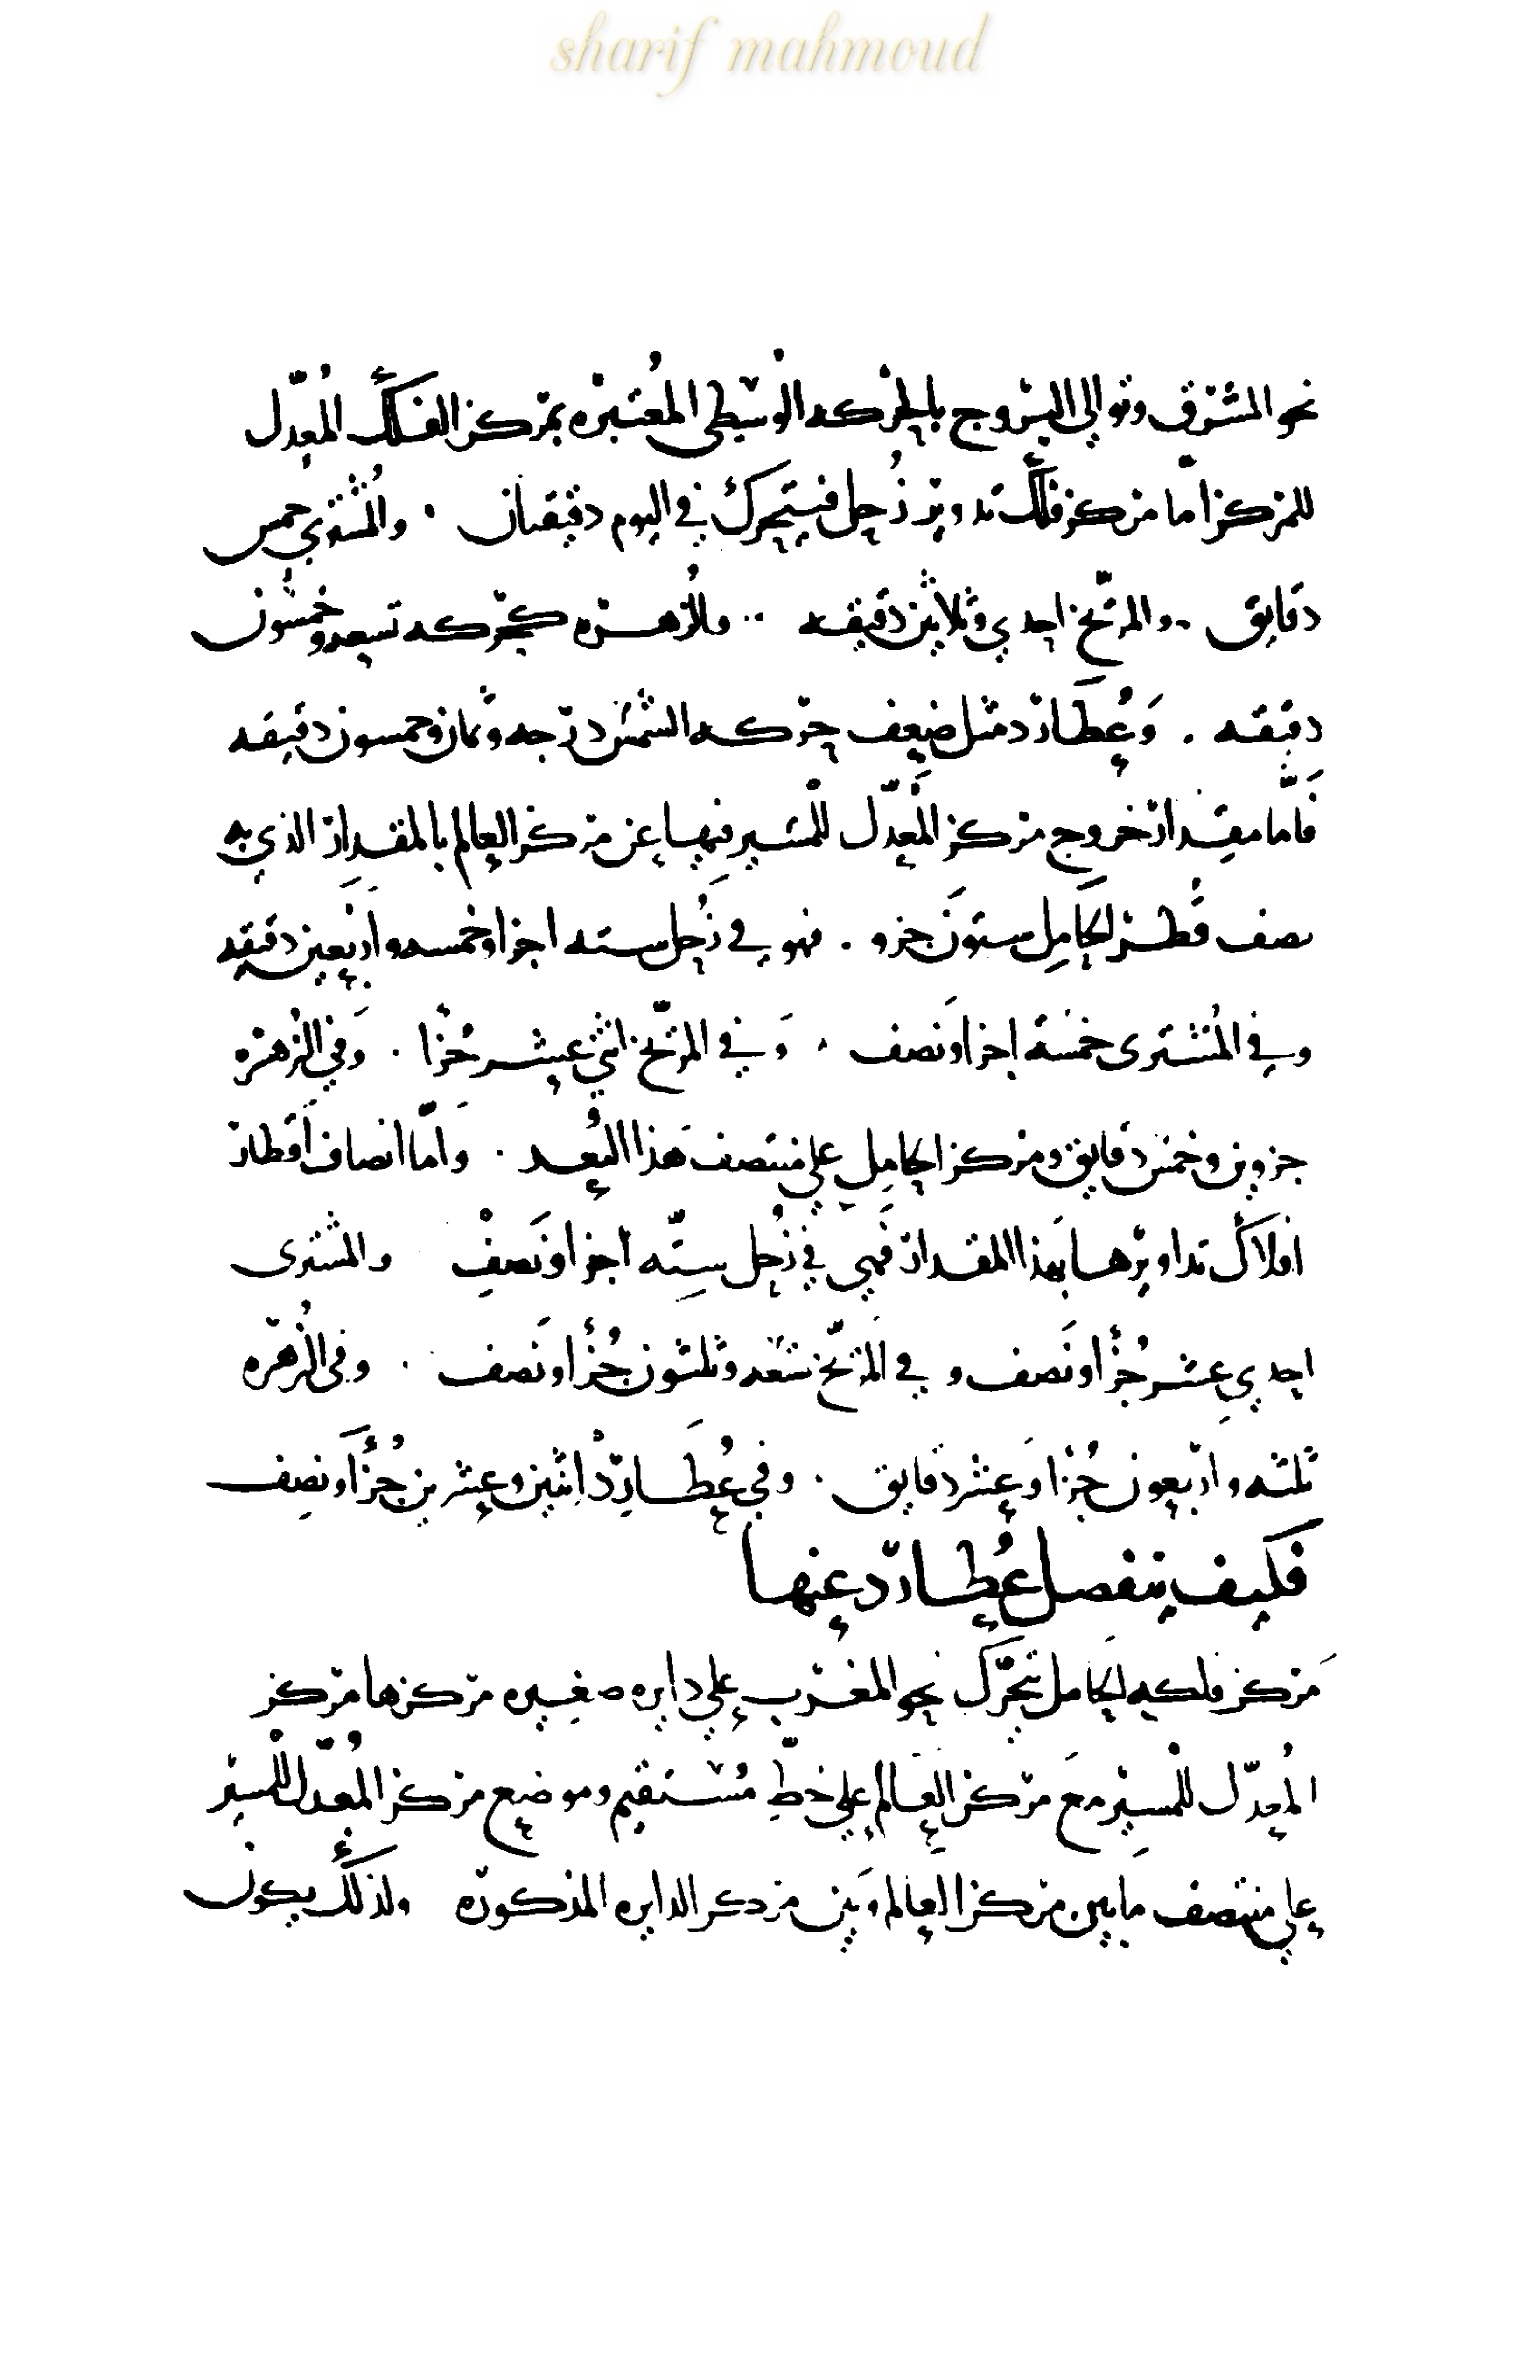 sharif mahmoud
نحو المشرق وتوالي البروج بالحركه الوسطي المعتبره بمركز الفلك المُعدّل
للمركز امّا مركز فلك تدوير زُحل فيتحرك في اليوم دقيقتان . والمُشتري خمس
دقايق . والمرّيخ احدي وثلاثين دقيقه . والزُهره كحركه تسعه وخمسون
دقيقه . وَعُطَارد مثل ضعف حركه الشمس درجه وثمان وخمسون دقيقه
فَأمّا مقدار خروج مركز المُعدّل للمسير فيها عن مركز العالم بالمقدار الذي به
نصف قُطر الحَامِل ستّونَ جزو . فهو في زُحل سته اجزا وخمسه واربعين دقيقه
وفي المُشترى خمسَة اجزا وَنصف . وَفي المرّيخ اثني عشر جُزْا . وَفي الزهره
جزوين وخمس دقايق ومركز الحامِل علي منتصف هَذا البُعد . وَامّا انصاف أقطار
افلاَك تداويرها بهذا المقدار فَهي في زُحل ستّه اجزا وَنصفْ والمشترى
احدي عِشر جُزْأ وَنصف وفي المرّيخ تسعه وثلثون جُزْأ وَنصف . وفى الزُهره
ثلثه واربعون جُزْا وَعشر دَقايق . وفي عُطَارد اِثنين وعِشرين جُزْأ وَنصِف
فَكيف ينفصل عُطارد عنها
مَركز فلكه الحَامل يتحَرّك نحو المغرب علي دايره صغيره مركزها مركز
المُعدّل للمسير مَعَ مركز العَالم علي خطّ مُستقيم وموضع مركز المُعدّل للمسير
علي منتصف مَا بين مركز العَالم وَبين مركز الدايره المذكوره ولذلكَ يكون